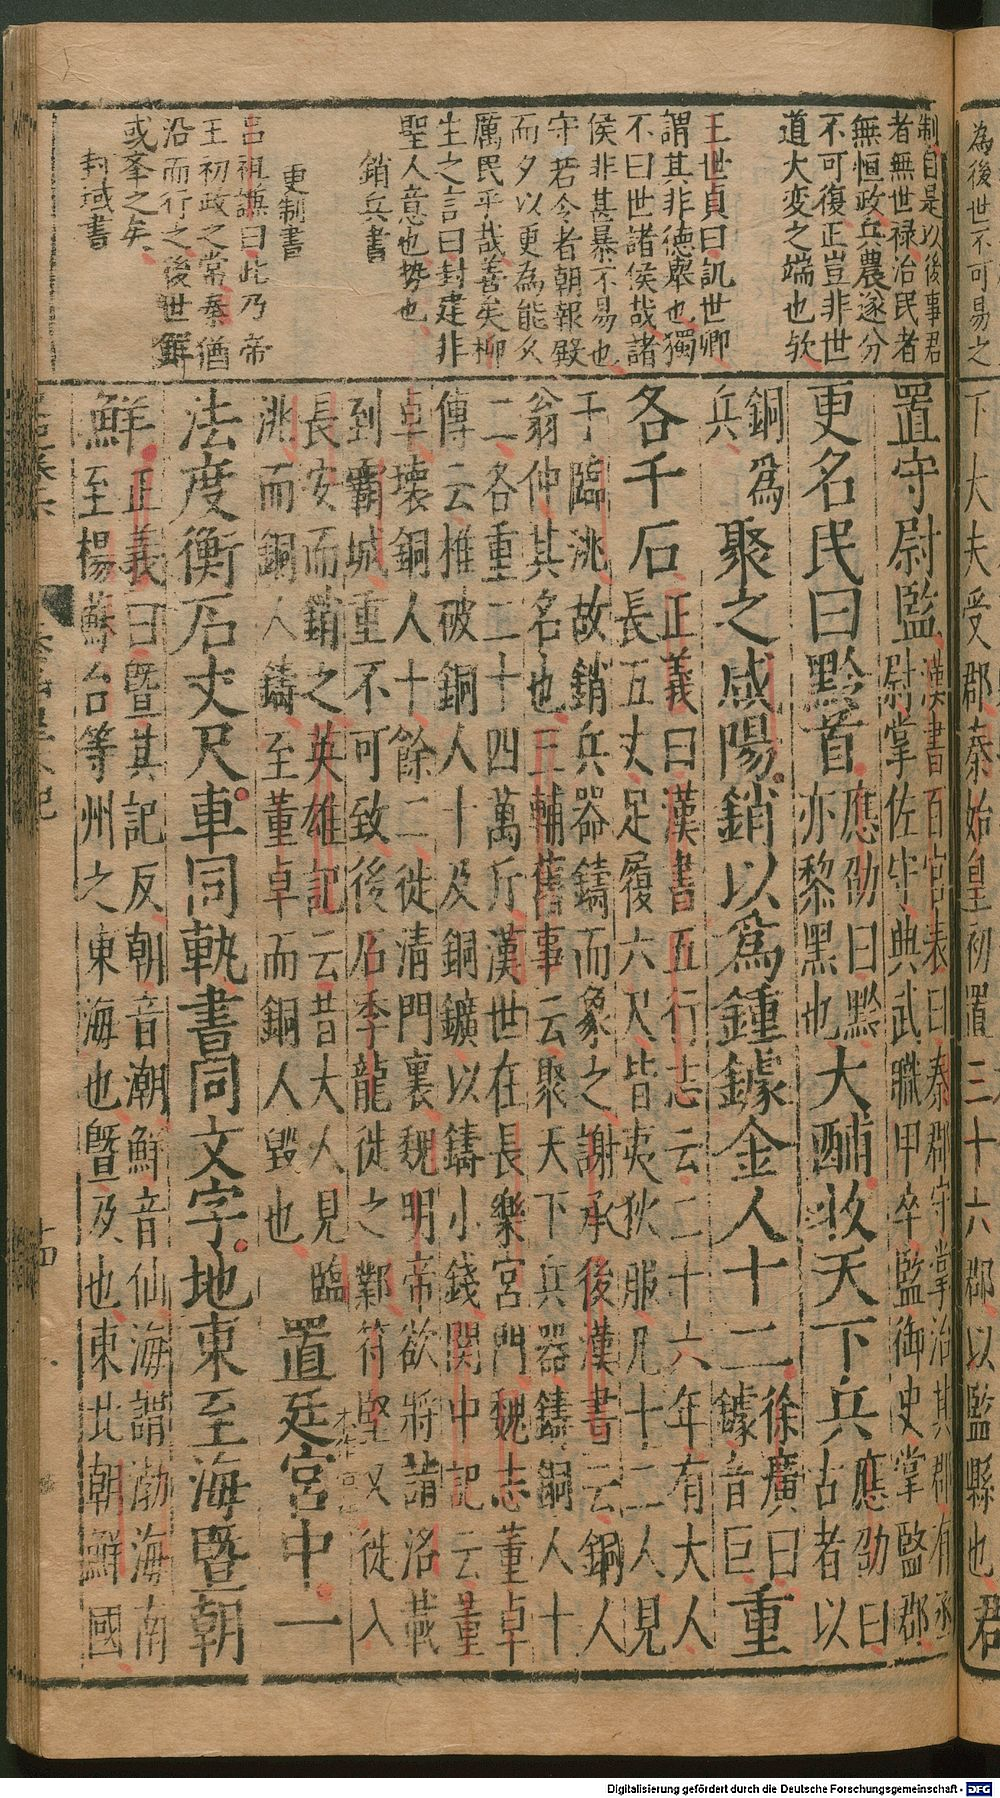 為後世不可易之
制自是以後事君
者無世禄治民者
無恒政兵農遂分
不可復正豈非世
道大変之端也欤
王世貞曰訊世卿
謂其非德舉也獨
不曰世諸侯哉諸
侯非甚暴不易也
守若令者朝報殿
而夕以更為能久
厲民乎哉善矣柳
生之言曰封建非
聖人意也勢也
銷兵書
更制書
吕祖謙曰此乃帝
王初政之常秦猶
沿而行之後世鮮
或峯之矣
封域書
下大夫受郡秦始皇初置三十六郡以監縣也君
置守尉監漢書百官表曰秦郡守掌治其郡有丞
尉掌佐守典武職甲卒監御史掌監郡
更名民曰黔首應劭曰黔
亦黎黑也大酺收天下兵應劭曰
古者以
銅為
兵聚之咸陽銷以爲鍾鐻金人十二徐廣曰
鐻音巨重
各千石正義曰漢書五行志云二十六年有大人
長五丈足履六尺皆夷狄服凡十二人見
于臨洮故銷兵器鑄而象之謝承後漢書云銅人
翁仲其名也三輔舊事云聚天下兵器鑄銅人十
二各重二十四萬斤漢世在長樂宮門魏志董卓
傳云椎破銅人十及銅鑛以鑄小錢関中記云董
卓壊銅人十餘二徙清門裏魏明帝欲將請洛載
到霸城重不可致後石季龍徙之鄴符堅又徙入
長安而銷之英雄記云昔大人見臨
洮而銅人鑄至董卓而銅人毀也置廷宮中一
法度衡石丈尺車同軌書同文字地東至海曁朝
鮮正義曰曁其記反朝音潮鮮音仙海謂渤海南
至楊蘇台等州之東海也曁及也東北朝鮮國
十四
Digitalisierung gefördert durch die Deutsche Forschungsgemeinschaft - DFG